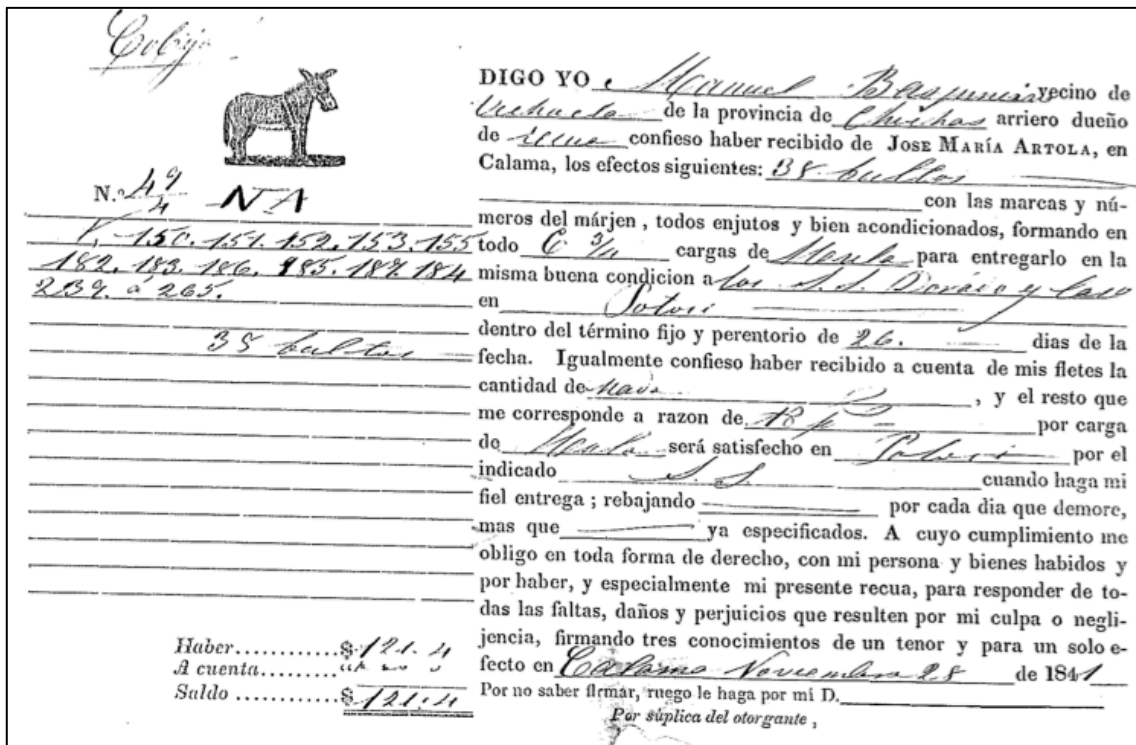 Cobija
DIGO YO Manuel vecino de
de la provincia de Chichas arriero dueño
de confieso haber recibido de JOSE MARÍA ARTOLA, en
Calama, los efectos siguientes: 38 bultos
N.º 49/4 NA
con las marcas y nú-
meros del márjen, todos enjutos y bien acondicionados, formando en
150. 151. 152. 153. 155
todo 6 3/4 cargas de Mula para entregarlo en la
182. 183. 186. 185. 187. 184
misma buena condicion a los S.S. Dorado y
239. a 265.
en Potosi
dentro del término fijo y perentorio de 26. dias de la
38 bultos
fecha. Igualmente confieso haber recibido a cuenta de mis fletes la
cantidad de nada , y el resto que
me corresponde a razon de 18 p por carga
de Mula será satisfecho en Potosi por el
indicado S.S. cuando haga mi
fiel entrega ; rebajando por cada dia que demore,
mas que ya especificados. A cuyo cumplimiento me
obligo en toda forma de derecho, con mi persona y bienes habidos y
por haber, y especialmente mi presente recua, para responder de to-
das las faltas, daños y perjuicios que resulten por mi culpa o negli-
jencia, firmando tres conocimientos de un tenor y para un solo e-
Haber............$ 121.4
fecto en Calama Noviembre 28 de 1841
A cuenta........
Saldo ............$ 121.4
Por no saber firmar, ruego le haga por mí D.
Por súplica del otorgante ,